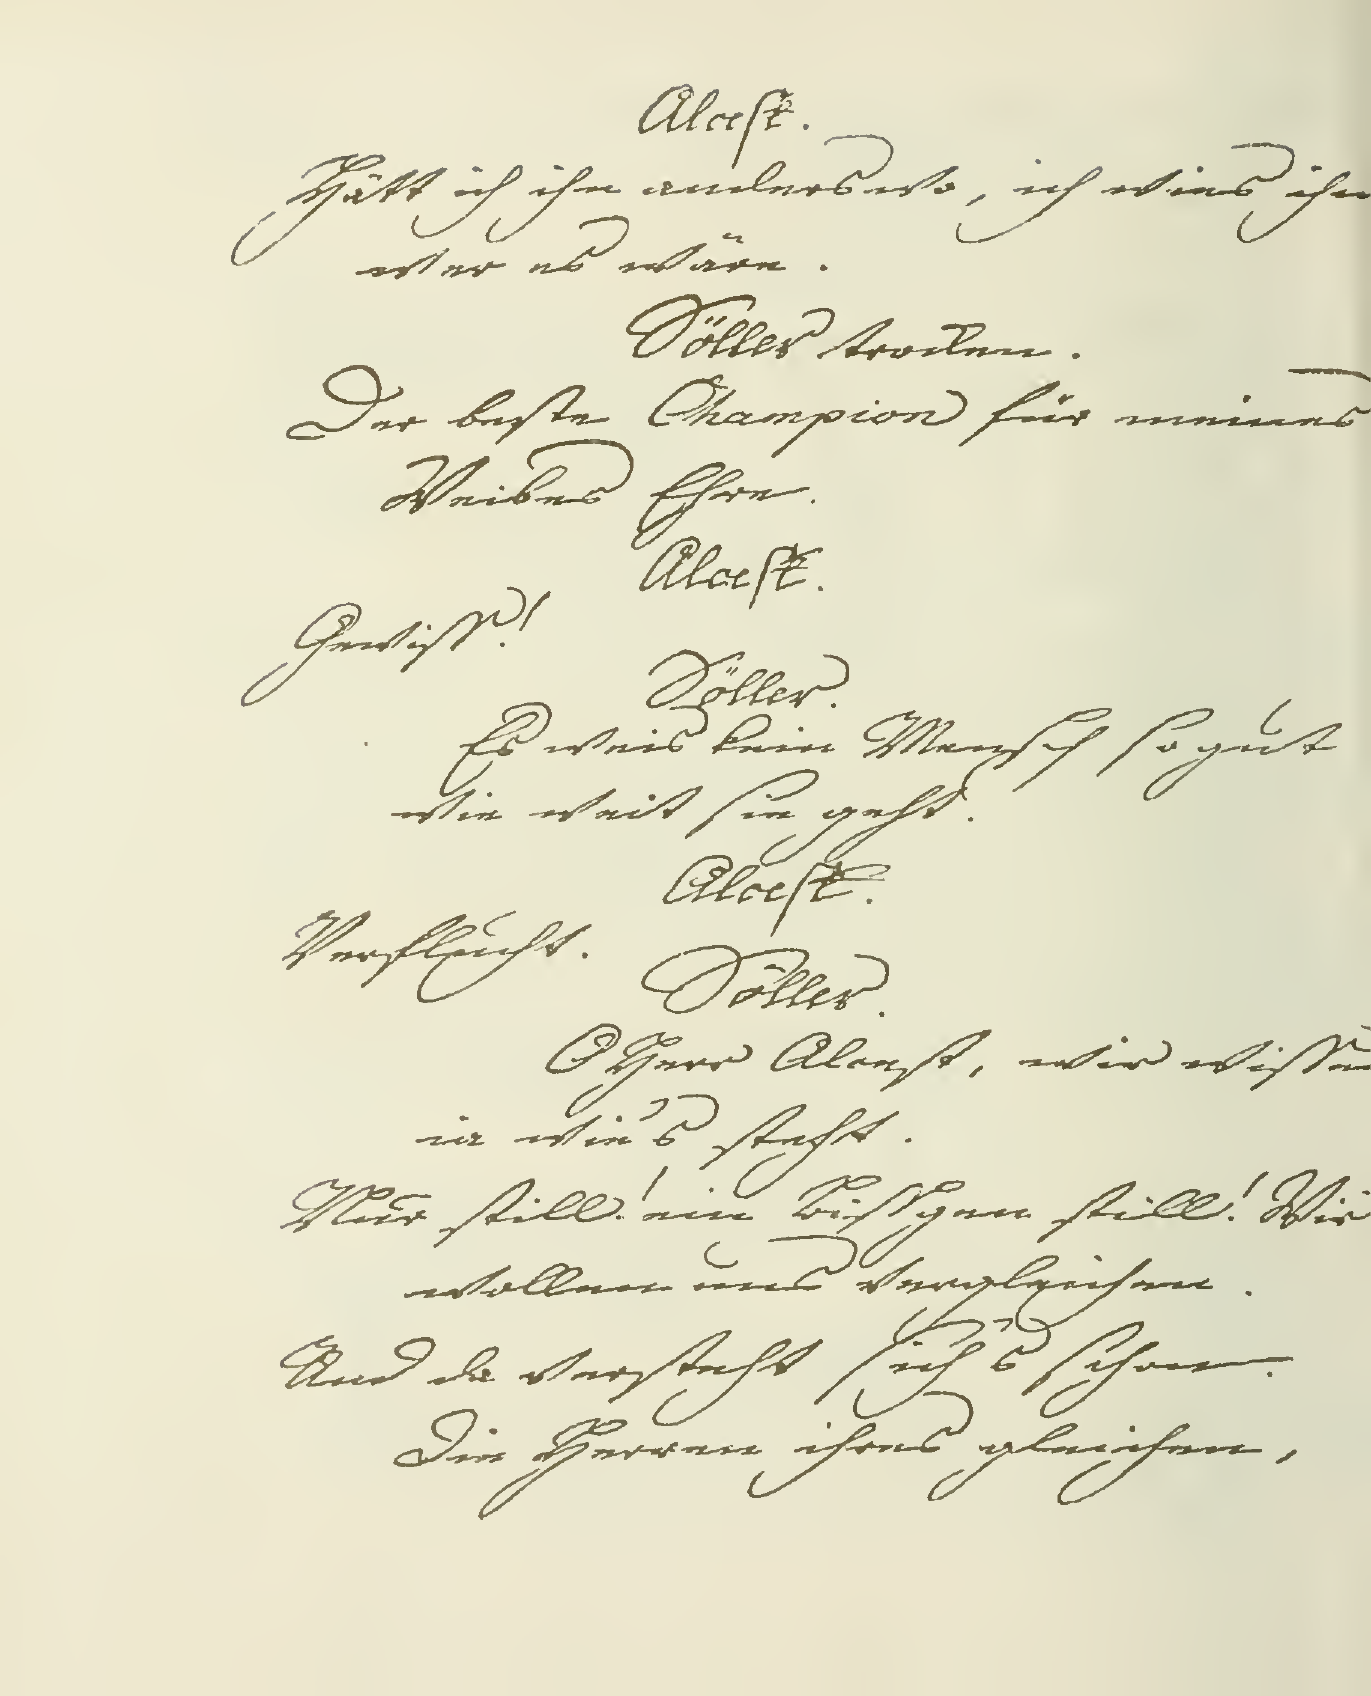 Alcest.
Hätt ich ihn anderswo, ich wies ihm
wer es wäre.
Söller trocken.
Der beste Champion für meines
Weibes Ehre.
Alcest.
Gewiss!
Söller.
Es weis kein Mensch so gut
wie weit sie geht.
Alcest.
Verflucht.
Söller.
O Herr Alcest, wir wissen
ia wie's steht.
Nur still! ein bissgen still! Wir
wollen uns vergleichen.
Und da versteht sich's schon.
Die Herren ihres gleichen,